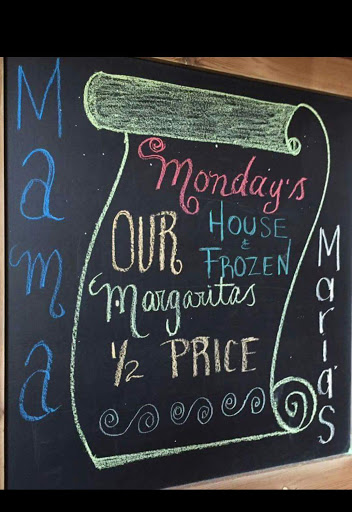 Mama
Monday's
OUR HOUSE
& FROZEN
Margaritas
1/2 PRICE
Maria's